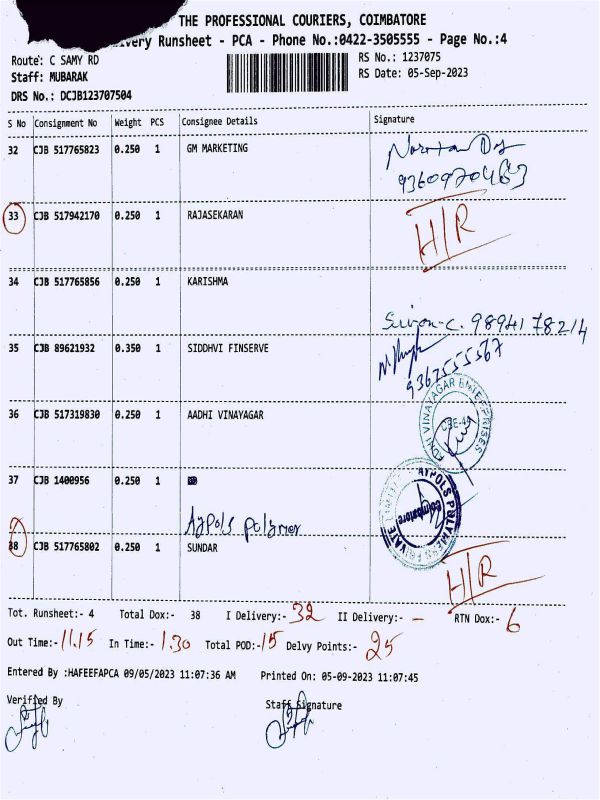 THE PROFESSIONAL COURIERS, COIMBATORE
ivery Runsheet - PCA - Phone No.:0422-3505555 - Page No.:4
Route: C SAMY RD RS No.: 1237075
Staff: MUBARAK RS Date: 05-Sep-2023
DRS No.: DCJB123707504
S No Consignment No Weight PCS Consignee Details Signature
32 CJB 517765823 0.250 1 GM MARKETING
33 CJB 517942170 0.250 1 RAJASEKARAN H/R
34 CJB 517765856 0.250 1 KARISHMA
98941 78214
35 CJB 89621932 0.350 1 SIDDHVI FINSERVE
9367555567
36 CJB 517319830 0.250 1 AADHI VINAYAGAR
VINAYAGAR ENTERPRISES
CBE-44
37 CJB 1400956 0.250 1
Aypols polymer
AYPOLS POLYMERS PRIVATE LIMITED
Coimbatore
38 CJB 517765802 0.250 1 SUNDAR H/R
Tot. Runsheet:- 4 Total Dox:- 38 I Delivery:- 32 II Delivery:- - RTN Dox:- 6
Out Time:- 11.15 In Time:- 1.30 Total POD:- 15 Delvy Points:- 25
Entered By :HAFEEFAPCA 09/05/2023 11:07:36 AM Printed On: 05-09-2023 11:07:45
Verified By Staff Signature